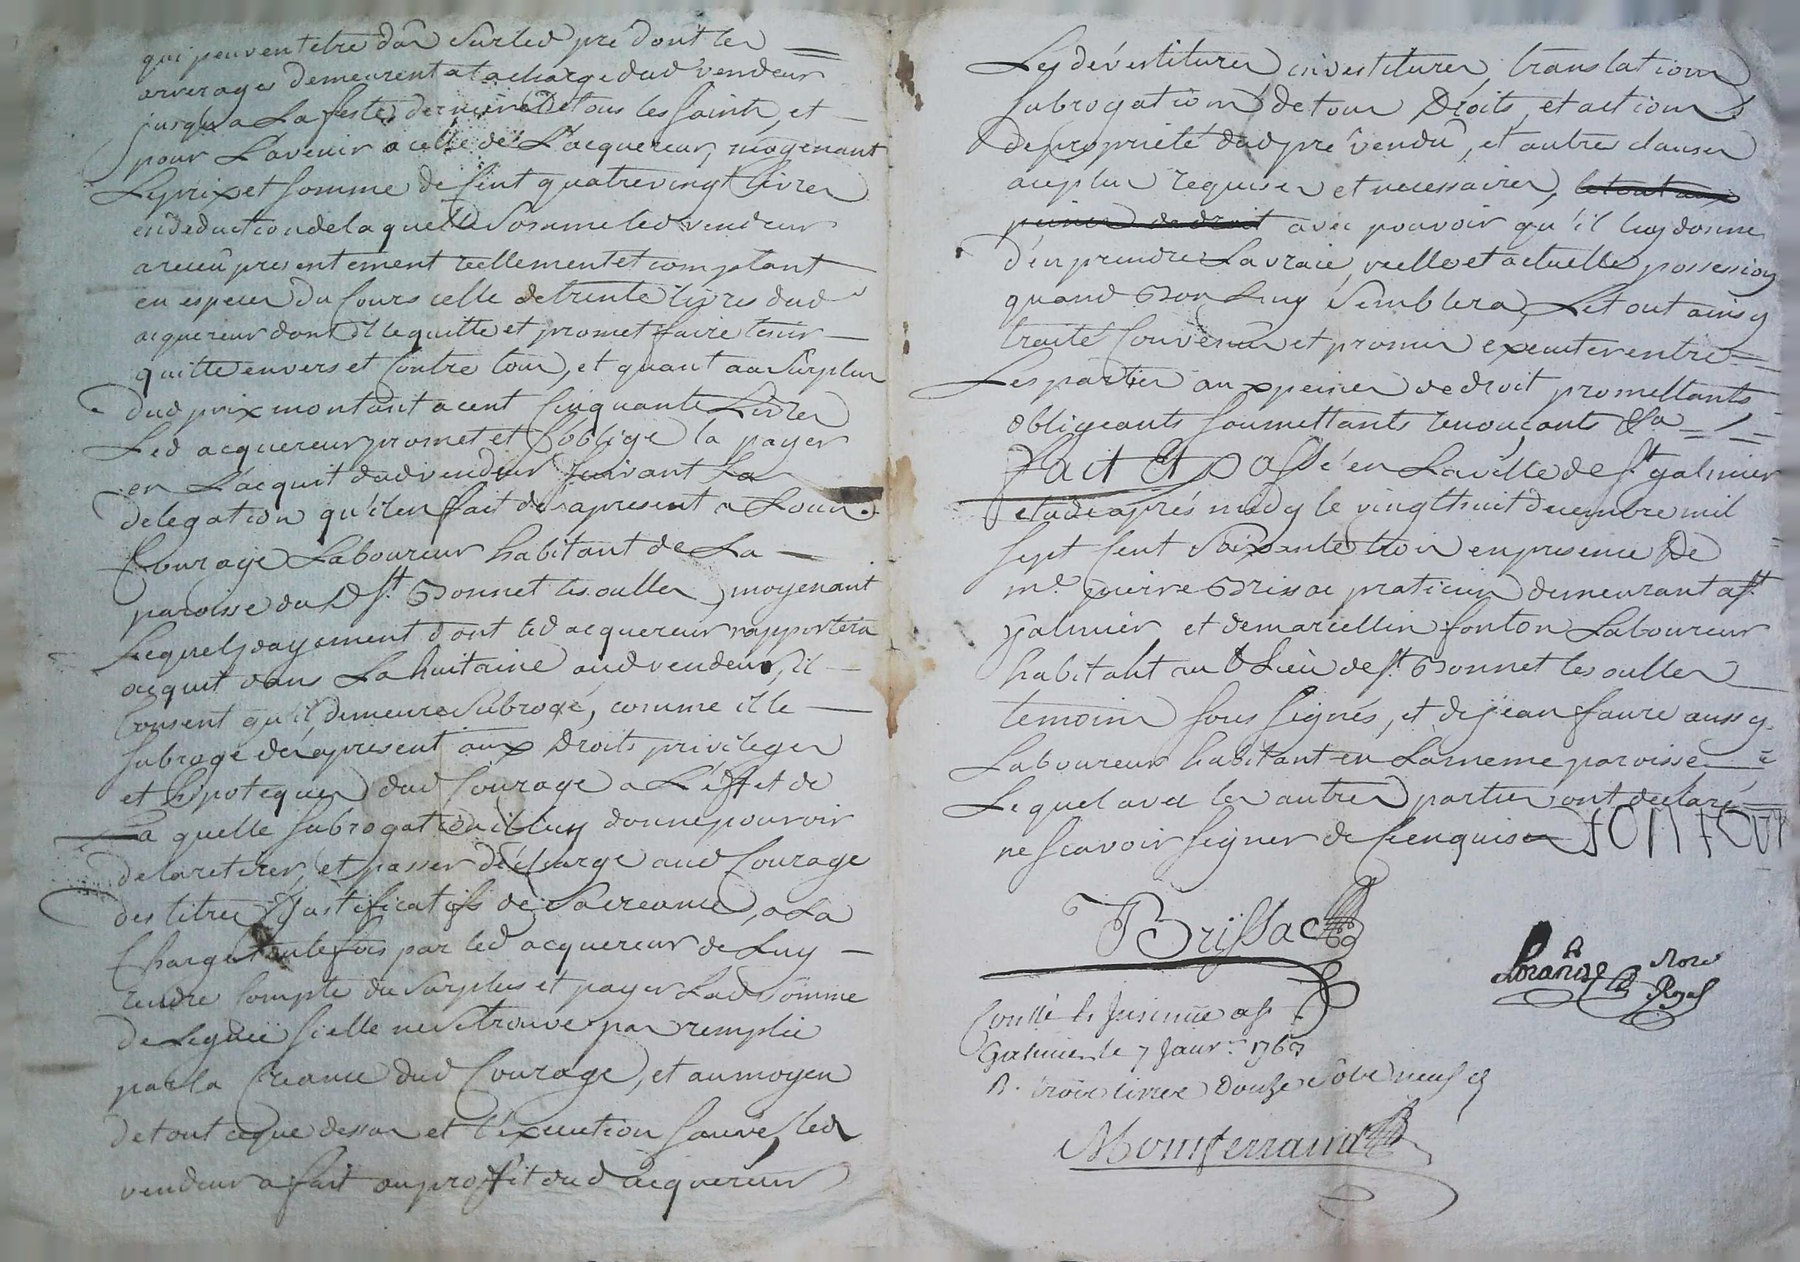 qui peuvent etre dûs sur led pré dont les
arrerages demeurent a la charge dud vendeur
jusqu'a La feste derniere de tous les saints, et
pour L'avenir a celle de L'acquereur, moyenant
Le prix et somme de Cent quatre vingt Livres
en deduction de laquelle somme led vendeur
a receû presentement reellement et comptant
en especes du Cours celle de trente livres dud
acquereur dont il le quitte et promet faire tenir
quitte envers et Contre tous, et quant au Surplus
dud prix montant a cent Cinquante Livres
Led acquereur promet et s'oblige la payer
en L'acquit dud vendeur suivant La
delegation qu'il en fait des apresent a Louis
Courage Laboureur habitant de La
paroisse dud St. Bonnet les oulles, moyenant
Lequel payement dont led acquereur rapportera
acquit dans La huitaine aud vendeur, il
Consent qu'il demeure Subrogé, comme il le
subroge des apresent aux Droits privileges
et hipoteques dud Courage a L'effet de
La quelle subrogation il luy donne pouvoir
de la retirer, et passer décharge aud Courage
des titres Justificatifs de Sa creance, a La
Charge toutefois par led acquereur de Luy
rendre Compte du Surplus et payer Lad somme
de si elle ne se trouve pas remplie
par la Creance dud Courage, et au moyen
de tout ce que dessus et l'execution sauve, led
vendeur a fait au proffit dud acquereur
Les dévestitures investitures, translations
subrogations de tous Droits, et actions
de propriété dud pré vendû, et autres clauses
au plus requises et necessaires, le tout aux
peines de droit avec pouvoir qu'il luy donne
d'en prendre La vraie, reelle et actuelle possession
quand Bon Luy Semblera, Le tout ainsy
traité Convenu et promis executer entre
Les parties aux peines de droit promettants
obligeants soumettants renonçants &a
Fait Et passé en La ville de St. galmier
etude après midy le vingthuit decembre mil
sept Cent Soixante trois en presence De
me. pierre Brissac praticien demeurant a St
galmier et de marcellin fonton Laboureur
habitant au Lieu de St. Bonnet les oulles
temoins sous signés, et de jean faure aussy
Laboureur habitant en La meme paroisse
Lequel avec les autres parties ont declaré
ne scavoir signer de ce enquis fonton
Brissac
Nore
Royal
Conllé & Insinué a St
Galmier le 7 Janvr. 176
R. trois livres Douze sols neuf d
Montferrand